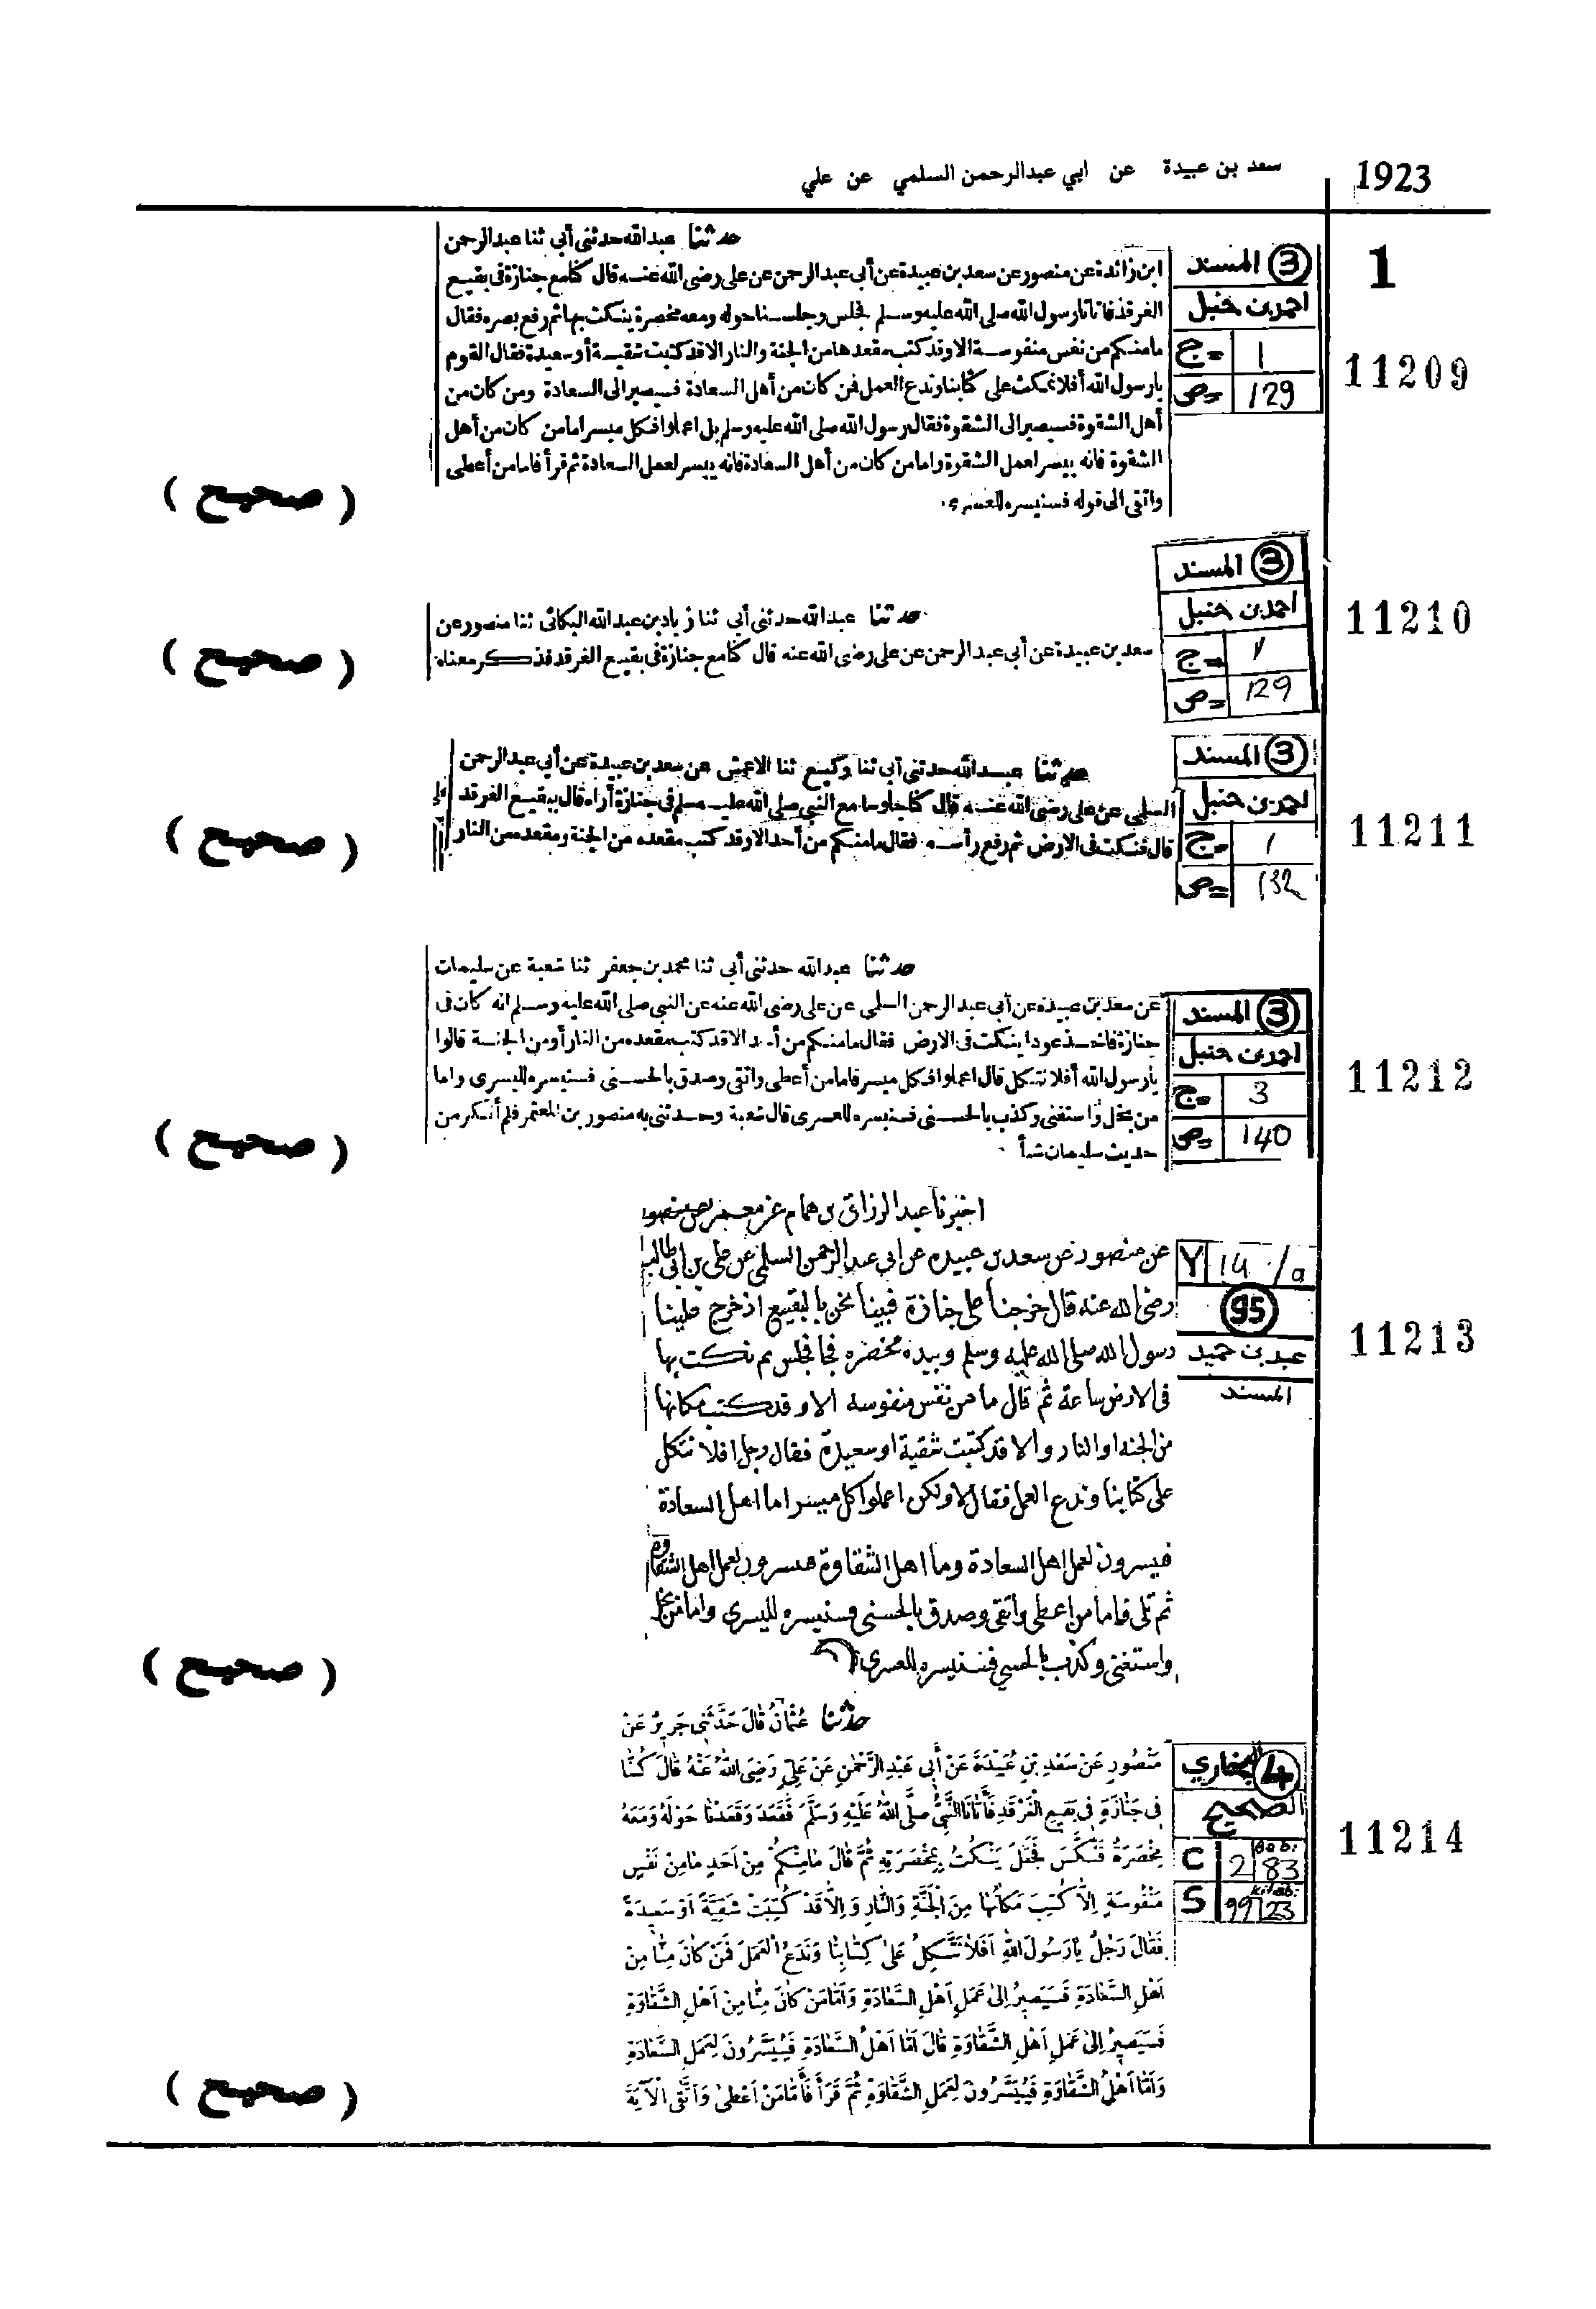 1923
سعد بن عبيدة عن ابي عبدالرحمن السلمي عن علي
1
11209
3 المسند
احمد بن حنبل
ج= 1
ص= 129
حدثنا عبد الله حدثني أبي ثنا عبد الرحمن
ابن زائدة عن منصور عن سعد بن عبيدة عن أبي عبد الرحمن عن على رضى الله عنه قال كنا مع جنازة فى بقيع
الغرقد فاتانا رسول الله صلى الله عليه وسلم فجلس وجلسنا حوله ومعه مخصرة ينكت بها ثم رفع بصره فقال
ما منكم من نفس منفوسة الا وقد كتب مقعدها من الجنة والنار الا قد كتبت شقية أو سعيدة فقال القوم
يا رسول الله أفلا نمكث على كتابنا وندع العمل فمن كان من أهل السعادة فسيصير الى السعادة ومن كان من
أهل الشقوة فسيصير الى الشقوة فقال رسول الله صلى الله عليه وسلم بل اعملوا فكل ميسر اما من كان من أهل
الشقوة فانه ييسر لعمل الشقوة واما من كان من أهل السعادة فانه ييسر لعمل السعادة ثم قرأ فاما من أعطى
واتقى الى قوله فسنيسره للعسرى.
( صحيح )
11210
3 المسند
احمد بن حنبل
ج= 1
ص= 129
حدثنا عبد الله حدثنى أبى ثنا زياد بن عبد الله البكائى ثنا منصور عن
سعد بن عبيدة عن أبى عبد الرحمن عن على رضى الله عنه قال كنا مع جنازة فى بقيع الغرقد فذكر معناه
( صحيح )
11211
3 المسند
احمد بن حنبل
ج= 1
ص= 132
حدثنا عبد الله حدثنى أبى ثنا وكيع ثنا الاعمش عن سعد بن عبيدة عن أبى عبد الرحمن
السلمى عن على رضى الله عنه قال كنا جلوسا مع النبى صلى الله عليه وسلم فى جنازة أراه قال ببقيع الغرقد
قال فنكت فى الارض ثم رفع رأسه فقال ما منكم من أحد الا وقد كتب مقعده من الجنة ومقعده من النار
( صحيح )
11212
3 المسند
احمد بن حنبل
ج= 3
ص= 140
حدثنا عبد الله حدثنى أبى ثنا محمد بن جعفر ثنا شعبة عن سليمان
عن سعد بن عبيدة عن أبى عبد الرحمن السلمى عن على رضى الله عنه عن النبى صلى الله عليه وسلم انه كان فى
جنازة فاخذ عودا ينكت فى الارض فقال ما منكم من أحد الا قد كتب مقعده من النار أو من الجنة قالوا
يا رسول الله أفلا نتكل قال اعملوا فكل ميسر فاما من أعطى واتقى وصدق بالحسنى فسنيسره لليسرى واما
من بخل واستغنى وكذب بالحسنى فسنيسره للعسرى قال شعبة وحدثنى به منصور بن المعتمر فلم أنكر من
حديث سليمان شيأ
( صحيح )
11213
Y 14 /a
95
عبد بن حميد
المسند
اخبرنا عبد الرزاق بن همام عن معمر عن منصور
عن منصور عن سعد بن عبيده عن ابي عبد الرحمن السلمى عن على بن ابي طالب
رضى الله عنه قال خرجنا على جنازة فبينا نحن بالبقيع اذ خرج علينا
رسول الله صلى الله عليه وسلم وبيده مخصره فجا فجلس ثم نكت بها
فى الارض ساعة ثم قال ما من نفس منفوسه الا وقد كتب مكانها
من الجنه او النار والا قد كتبت شقية او سعيدة فقال رجل افلا نتكل
على كتابنا وندع العمل فقال لا ولكن اعملوا كل ميسر اما اهل السعادة
فييسرون لعمل اهل السعادة وما اهل الشقاوة فييسرون لعمل اهل الشقاوة
ثم تلى فاما من اعطى واتقى وصدق بالحسنى فسنيسره لليسرى واما من بخل
واستغنى وكذب بالحسنى فسنيسره للعسرى
( صحيح )
11214
4 البخاري
الصحيح
C 2 bab: 83
S 99 kitab: 23
حدثنا عُثْمَانُ قَالَ حَدَّثَنِى جَرِيرٌ عَنْ
مَنْصُورٍ عَنْ سَعْدِ بْنِ عُبَيْدَةَ عَنْ أَبِى عَبْدِ الرَّحْمٰنِ عَنْ عَلِيٍّ رَضِىَ اللّٰهُ عَنْهُ قَالَ كُنَّا
فِى جَنَازَةٍ فِى بَقِيعِ الْغَرْقَدِ فَأَتَانَا النَّبِىُّ صَلَّى اللّٰهُ عَلَيْهِ وَسَلَّمَ فَقَعَدَ وَقَعَدْنَا حَوْلَهُ وَمَعَهُ
مِخْصَرَةٌ فَنَكَّسَ فَجَعَلَ يَنْكُتُ بِمِخْصَرَتِهِ ثُمَّ قَالَ مَا مِنْكُمْ مِنْ اَحَدٍ مَا مِنْ نَفْسٍ
مَنْفُوسَةٍ اِلَّا كُتِبَ مَكَانُهَا مِنَ الْجَنَّةِ وَالنَّارِ وَاِلَّا قَدْ كُتِبَتْ شَقِيَّةً اَوْ سَعِيدَةً
فَقَالَ رَجُلٌ يَا رَسُولَ اللّٰهِ اَفَلَا نَتَّكِلُ عَلَى كِتَابِنَا وَنَدَعُ الْعَمَلَ فَمَنْ كَانَ مِنَّا مِنْ
اَهْلِ السَّعَادَةِ فَسَيَصِيرُ اِلَى عَمَلِ اَهْلِ السَّعَادَةِ وَاَمَّا مَنْ كَانَ مِنَّا مِنْ اَهْلِ الشَّقَاوَةِ
فَسَيَصِيرُ اِلَى عَمَلِ اَهْلِ الشَّقَاوَةِ قَالَ اَمَّا اَهْلُ السَّعَادَةِ فَيُيَسَّرُونَ لِعَمَلِ السَّعَادَةِ
وَاَمَّا اَهْلُ الشَّقَاوَةِ فَيُيَسَّرُونَ لِعَمَلِ الشَّقَاوَةِ ثُمَّ قَرَأَ فَأَمَّا مَنْ اَعْطَى وَاتَّقَى الْآيَةَ
( صحيح )